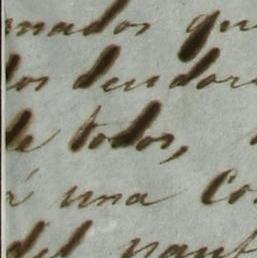 mados qu
los deudor
de todos,
á una Co
del